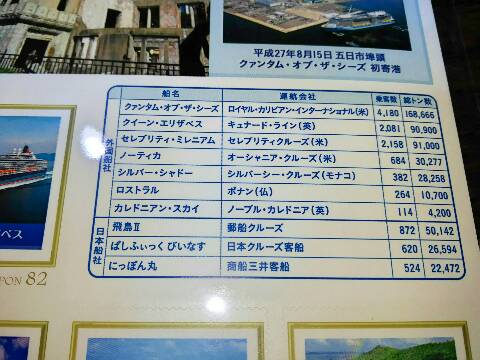 平成27年8月15日 五日市埠頭
クァンタム・オブ・ザ・シーズ 初寄港
船名 運航会社 乗客数 総トン数
外国船社
クァンタム・オブ・ザ・シーズ ロイヤル・カリビアン・インターナショナル(米) 4,180 168,666
クイーン・エリザベス キュナード・ライン(英) 2,081 90,900
セレブリティ・ミレニアム セレブリティクルーズ(米) 2,158 91,000
ノーティカ オーシャニア・クルーズ(米) 684 30,277
シルバー・シャドー シルバーシー・クルーズ(モナコ) 382 28,258
ロストラル ポナン(仏) 264 10,700
カレドニアン・スカイ ノーブル・カレドニア(英) 114 4,200
日本船社
飛鳥Ⅱ 郵船クルーズ 872 50,142
ぱしふぃっく びいなす 日本クルーズ客船 620 26,594
にっぽん丸 商船三井客船 524 22,472
ベス
PON 82